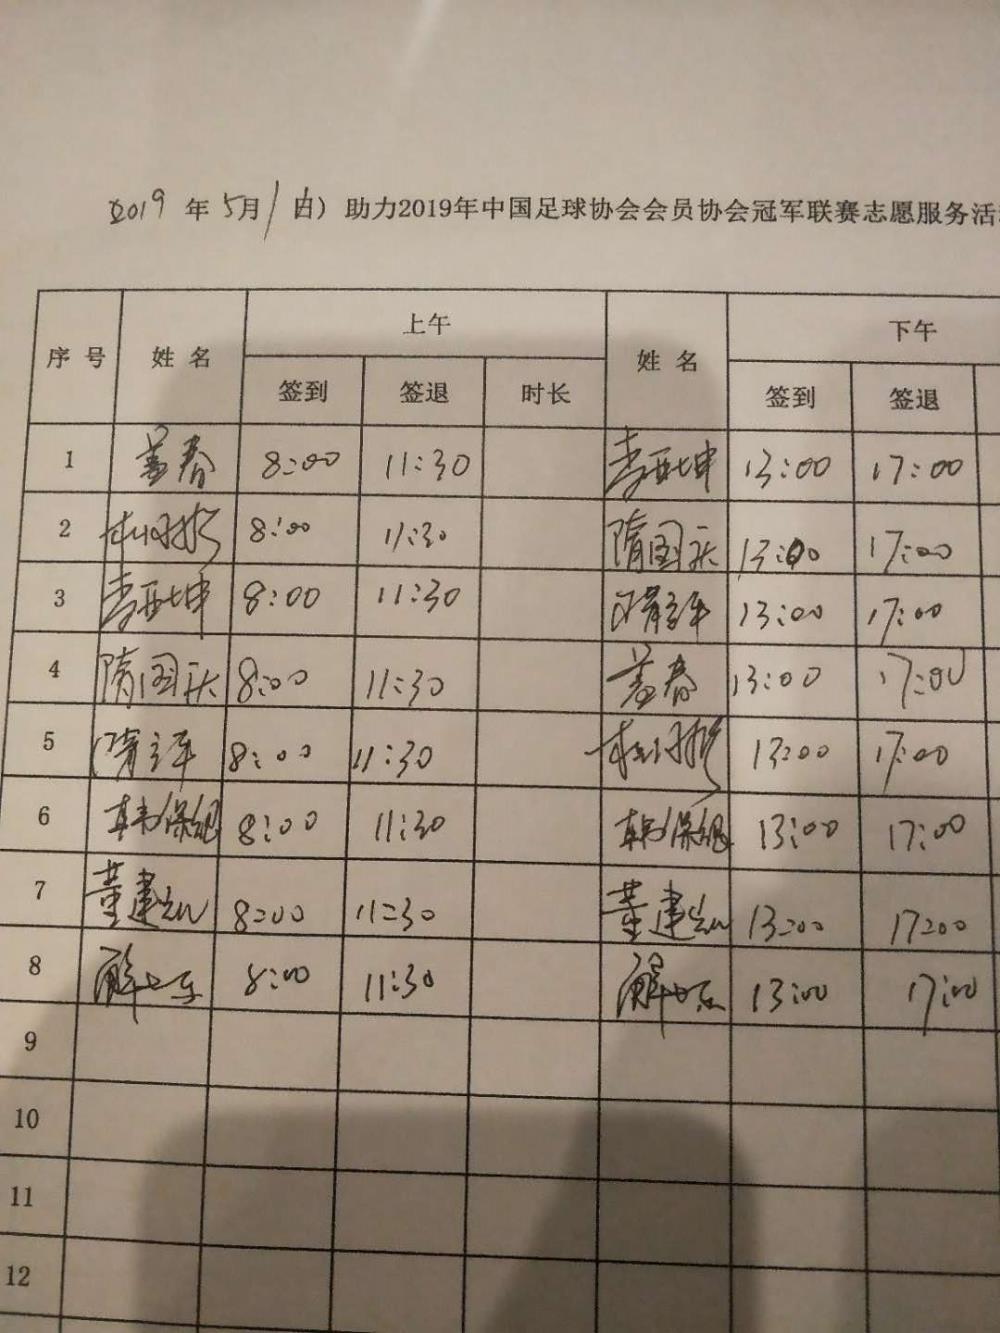 2019年5月1日）助力2019年中国足球协会会员协会冠军联赛志愿服务活
序号 姓名 上午 姓名 下午
签到 签退 时长 签到 签退
1 姜春 8:00 11:30 李亚坤 13:00 17:00
2 8:00 11:30 隋国庆 13:00 17:00
3 李亚坤 8:00 11:30 13:00 17:00
4 隋国庆 8:00 11:30 姜春 13:00 17:00
5 8:00 11:30 13:00 17:00
6 8:00 11:30 13:00 17:00
7 董建 8:00 11:30 董建 13:00 17:00
8 解 8:00 11:30 解 13:00 17:00
9
10
11
12